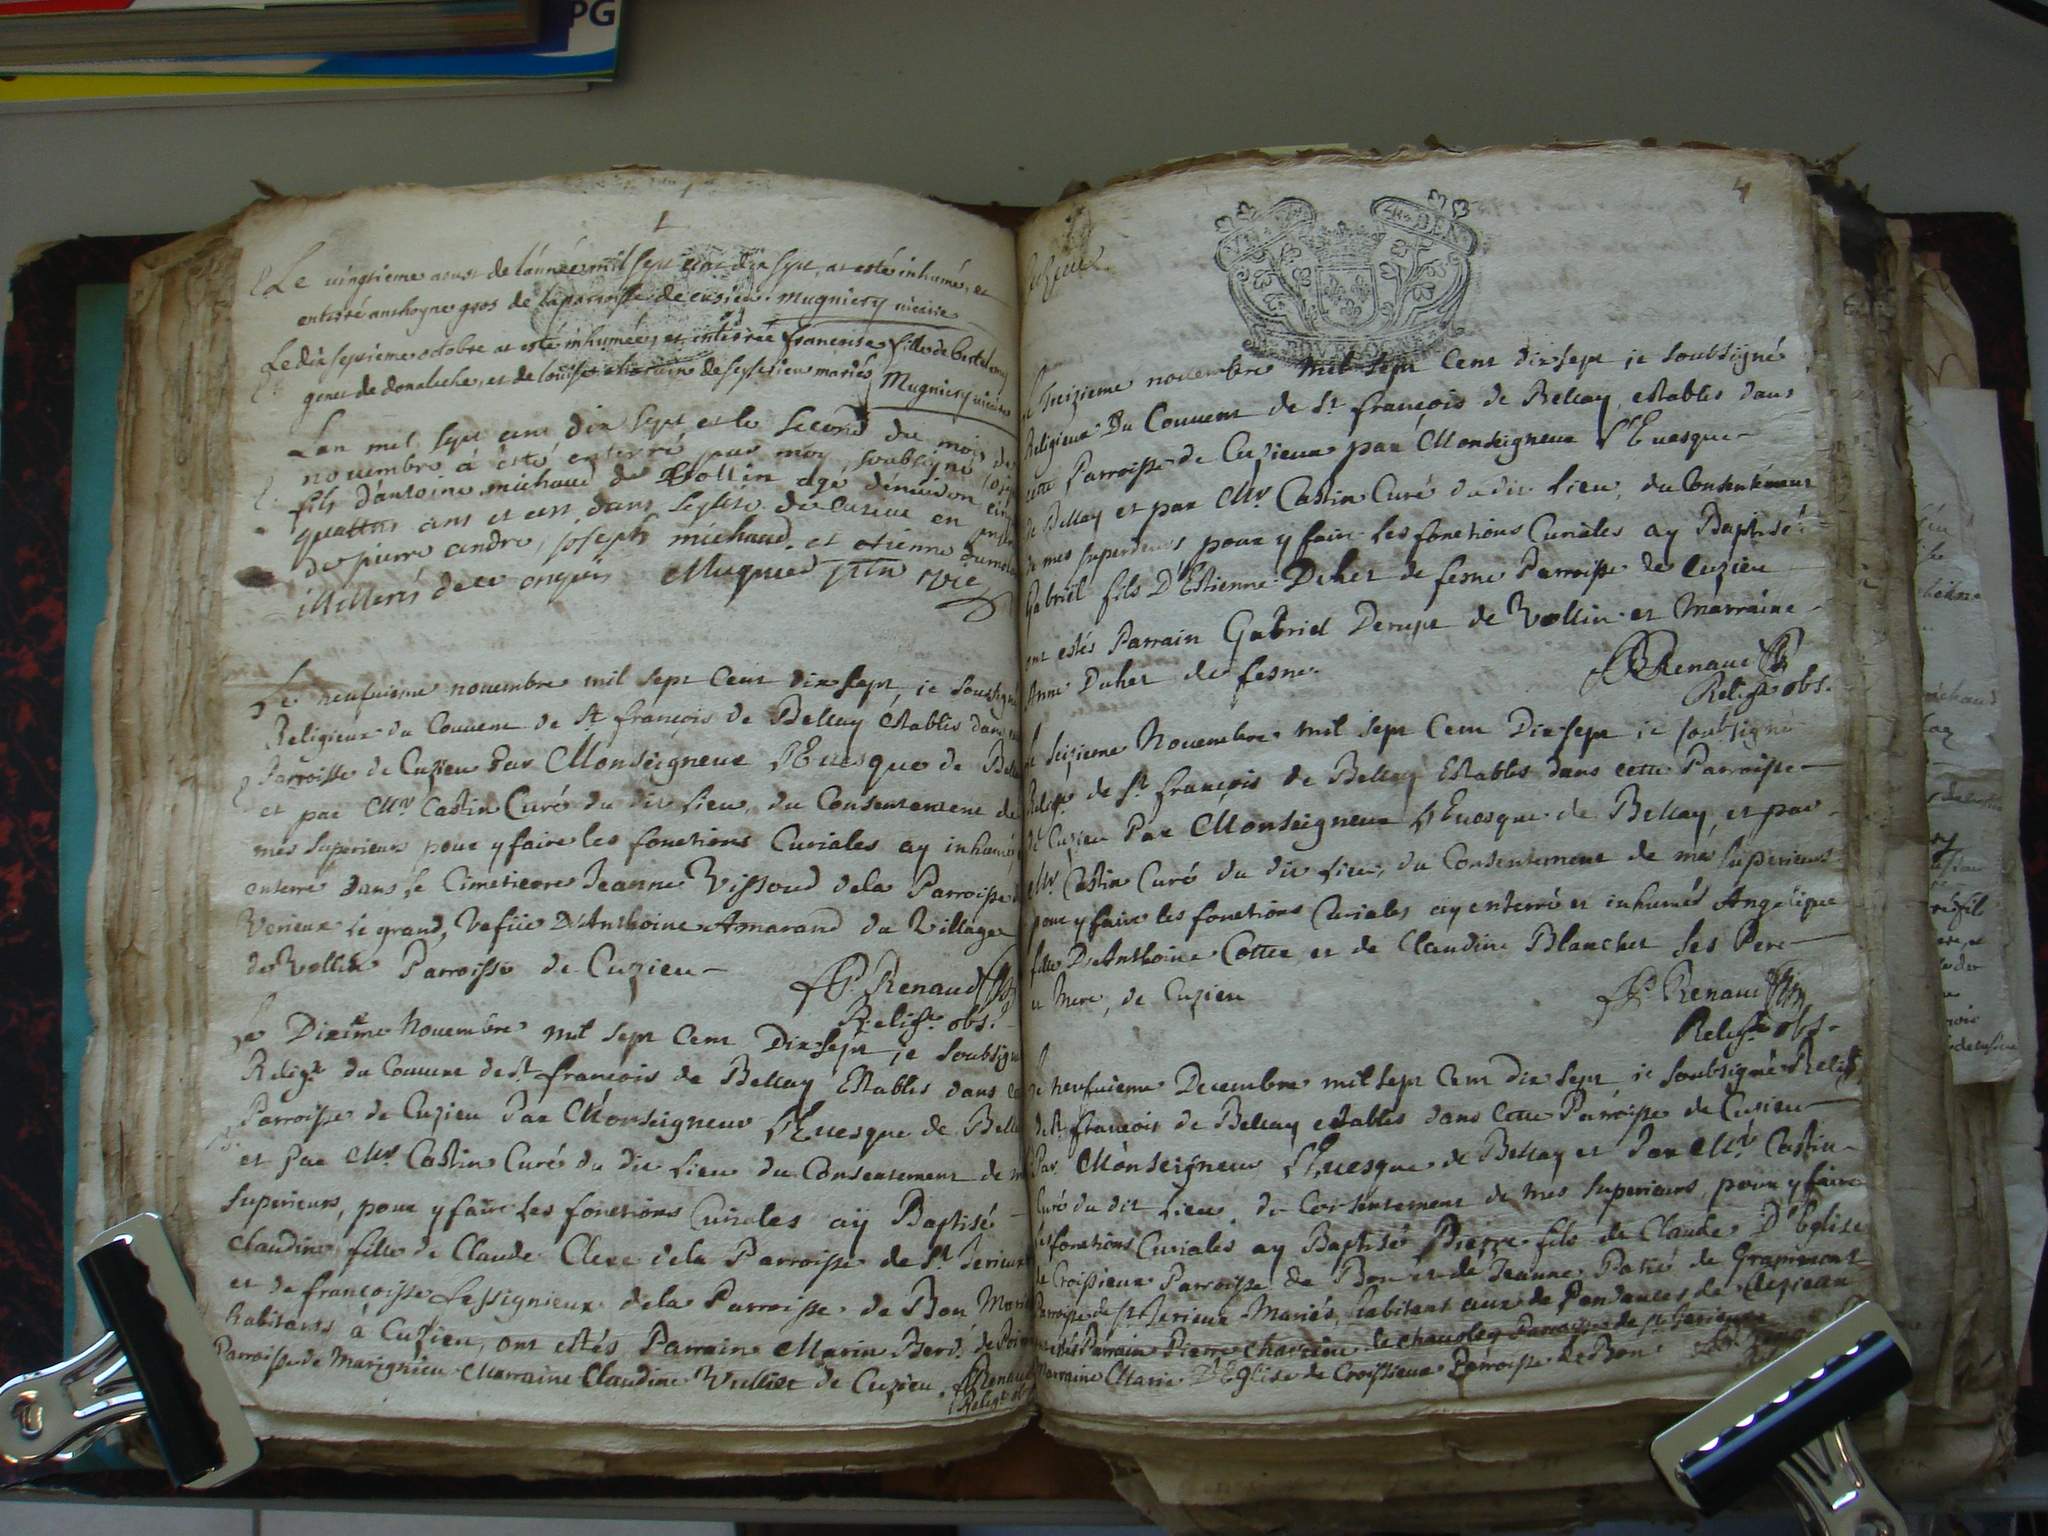 PG
Le vingtieme aoust de lannée mil sept cent dix sept, at esté inhumé, et
enterré anthoyne gros de la parroisse de cusieu. Mugniery vicaire
Le dix septieme octobre at esté inhumée, et enterrée francoise fille de
genet de donaleche, et de de seyssieu mariés Mugniery
Lan mil sept cent dix sept et le second du mois de
novembre à esté enterré par moy soubsigné
fils d'antoine michaud de Vollin age denviron
quattre ans et cest dans leglise de Cuzieu en
de pierre andre, joseph michaud, et etienne
illitterés de ce enquis Mugnied ptre vic
Le neufuieme nouembre mil sept Cent dix sept, ie soussigné
Religieux du Couuent de St françois de Bellay establis dans
Parroisse de Cuzieu Par Monseigneur l'Euesque de
et par Mr. Castin Curé du dit Lieu, du Consentement de
mes Superieurs pour y faire les fonctions Curiales ay inhumé
enterré dans le Cimetierre Jeanne Vissoud dela Parroisse
Verieux le grand, Vefue D'Anthoine Amarand du Village
de Vollin Parroisse de Cuzieu
P. Renaud
Relig. obs.
Le Dixime Nouembre mil sept Cent Dix sept, ie soubsigné
Relig. du Couuent de St françois de Bellay Establis dans
Parroisse de Cuzieu Par Monseigneur l'Euesque de
et par Mr. Castin Curé du dit Lieu du Consentement de
Superieurs, pour y faire les fonctions Curiales aÿ Baptisé
Claudine fille de Claude Clerc dela Parroisse de St Jerieux
et de françoise Lessignieux dela Parroisse de Bon
habitants à Cuzieu, ont estés Parrain Marin
Parroisse de Marignieu Marraine Claudine Vullier de Cuzieu. P. Renaud
Relig.
4
Cuzieu
Treizieme nouembre mil sept Cent dix sept ie soubsigné
Religieux Du Couuent de St françois de Bellay, establis dans
cette Parroisse de Cuzieux par Monseigneur l'Euesque
de Bellay et par Mr Castin Curé du dit Lieu, du Consentément
de mes superieurs pour y faire les fonctions Curiales ay Baptisé
Gabriel fils D'Estienne Duhet de fesne Parroisse de Cuzieu
ont estés Parrain Gabriel Derupt de Vollin et Marraine
Anne Duhet de fesne.
P. Renaud
Relig. obs.
Le Seizieme Nouembre mil sept Cent Dix sept ie soubsigné
Relig. de St françois de Bellay Establis dans cette Parroisse
de Cuzieu Par Monseigneur l'Euesque de Bellay, et par
Mr Castin Curé du dit Lieu, du Consentement de mes Superieurs
pour y faire les fonctions Curiales ay enterré et inhumé Angelique
fille D'Anthoine Cotter et de Claudine Blanchet ses Pere
et Mere, de Cuzieu
P. Renaud
Relig. obs.
Le neufuieme Decembre mil sept Cent dix sept ie soubsigné Relig.
de St françois de Bellay establis dans Cette Parroisse de Cuzieu
Par Monseigneur l'Euesque de Bellay et Par Mr. Castin
Curé du dit Lieu, du Consentement de mes superieurs, pour y faire
les fonctions Curiales ay Baptisé Pierre fils de Claude D'Eglise
de Croissieux Parroisse de Bon et de Jeanne Patié de Grammont
Parroisse de St Jerieux Mariés, habitant aux de Pendances de
estés Parrain Pierre Parroisse de St Jerieux
Marraine Marie D'Eglise de Croissieux Parroisse de Bon